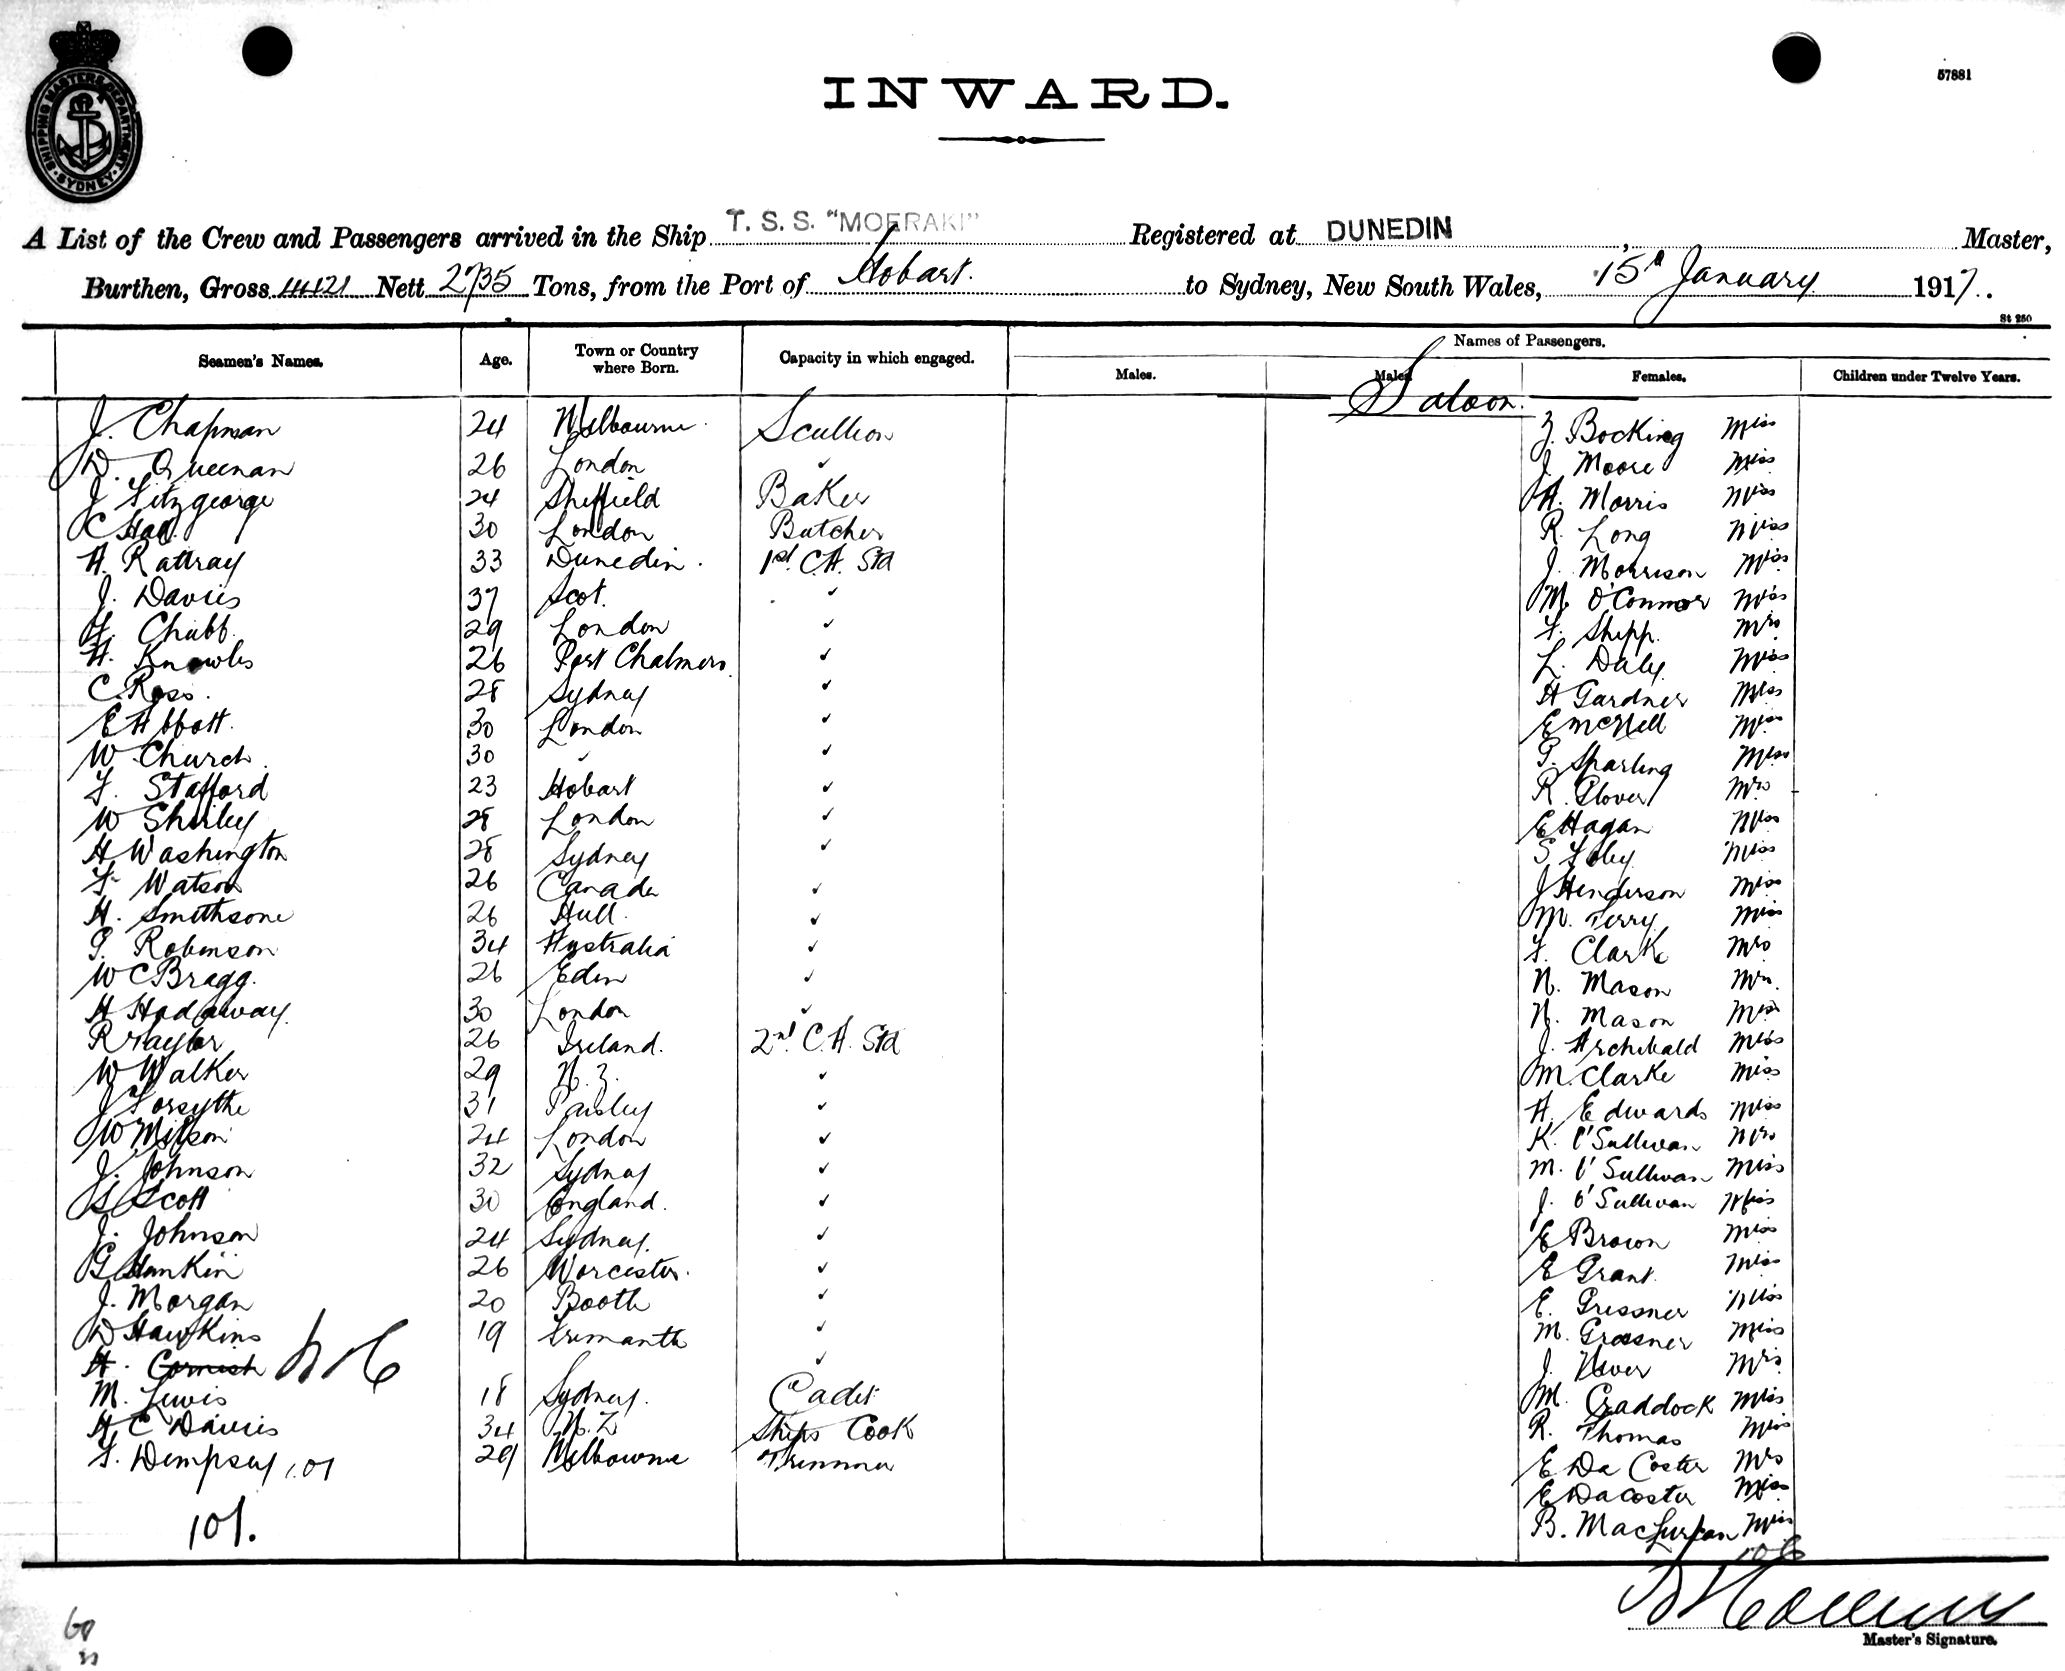 SHIPPING MASTERS DEPARTMENT SYDNEY
57881
INWARD.
A List of the Crew and Passengers arrived in the Ship T. S. S. "MOERAKI" Registered at DUNEDIN, Master,
Burthen, Gross 4421 Nett 2735 Tons, from the Port of Hobart. to Sydney, New South Wales, 15th January 1917.
St 250
Seamen's Names. Age. Town or Country where Born. Capacity in which engaged. Names of Passengers.
Males. Males. Females. Children under Twelve Years.
Saloon.
J. Chapman 24 Melbourne. Scullion Z. Bocking Miss
D. Queenan 26 London ✓ J. Moore Miss
J. Fitzgeorge 24 Sheffield Baker A. Morris Miss
C Hall. 30 London Butcher R. Long Miss
A. Rattray 33 Dunedin. 1st. C.A. Std J. Morrison Miss
J. Davies 37 Scot. ✓ M. O'Connor Miss
F. Chubb. 29 London ✓ F. Shipp. Mrs
A. Knowles 26 Port Chalmers. ✓ L. Daly. Miss
C. Ross. 28 Sydney ✓ A Gardner Miss
E Abbott. 30 London ✓ E McNeill Miss
W Church. 30 ✓ ✓ G. Sparling Miss
F. Stafford 23 Hobart ✓ R. Glover Mrs
W Shirley 28 London ✓ E Hagan Miss
H Washington 28 Sydney ✓ S Foley Miss
F. Watson 26 Canada ✓ J Henderson Miss
H. Smithsone 26 Hull. ✓ M. Terry Miss
G. Robinson 34 Australia ✓ F. Clarke Mrs
W C Bragg. 26 Eden ✓ N. Mason Mrs.
H Hadaway. 30 London ✓ N. Mason Miss
R Taylor 26 Ireland. 2nd. C.A. Std J. Archibald Miss
W Walker 29 N.Z. ✓ M. Clarke Miss
J Forsythe 31 Paisley ✓ A. Edwards Miss
W Wilson 24 London ✓ K. O'Sullivan Mrs
J. Johnson 32 Sydney ✓ M. O'Sullivan Miss
Scott 30 England. ✓ J. O'Sullivan Miss
J. Johnson 24 Sydney. ✓ E Brown Miss
G Hankin 26 Worcester. ✓ E Grant. Miss
J. Morgan 20 Booth ✓ E. Gressner Miss
D Hawkins 19 Fremantle ✓ M. Gressner Miss
H. Cornish ✓ J. Mrs
M. Lewis 18 Sydney. Cadet M. Craddock Miss
H C Davies 34 N.Z Ships Cook R. Thomas Miss
F. Dempsey 101 29 Melbourne Trimmer E Da Coster Mrs
E Dacoster Miss
101. B. Miss
106
Master's Signature.